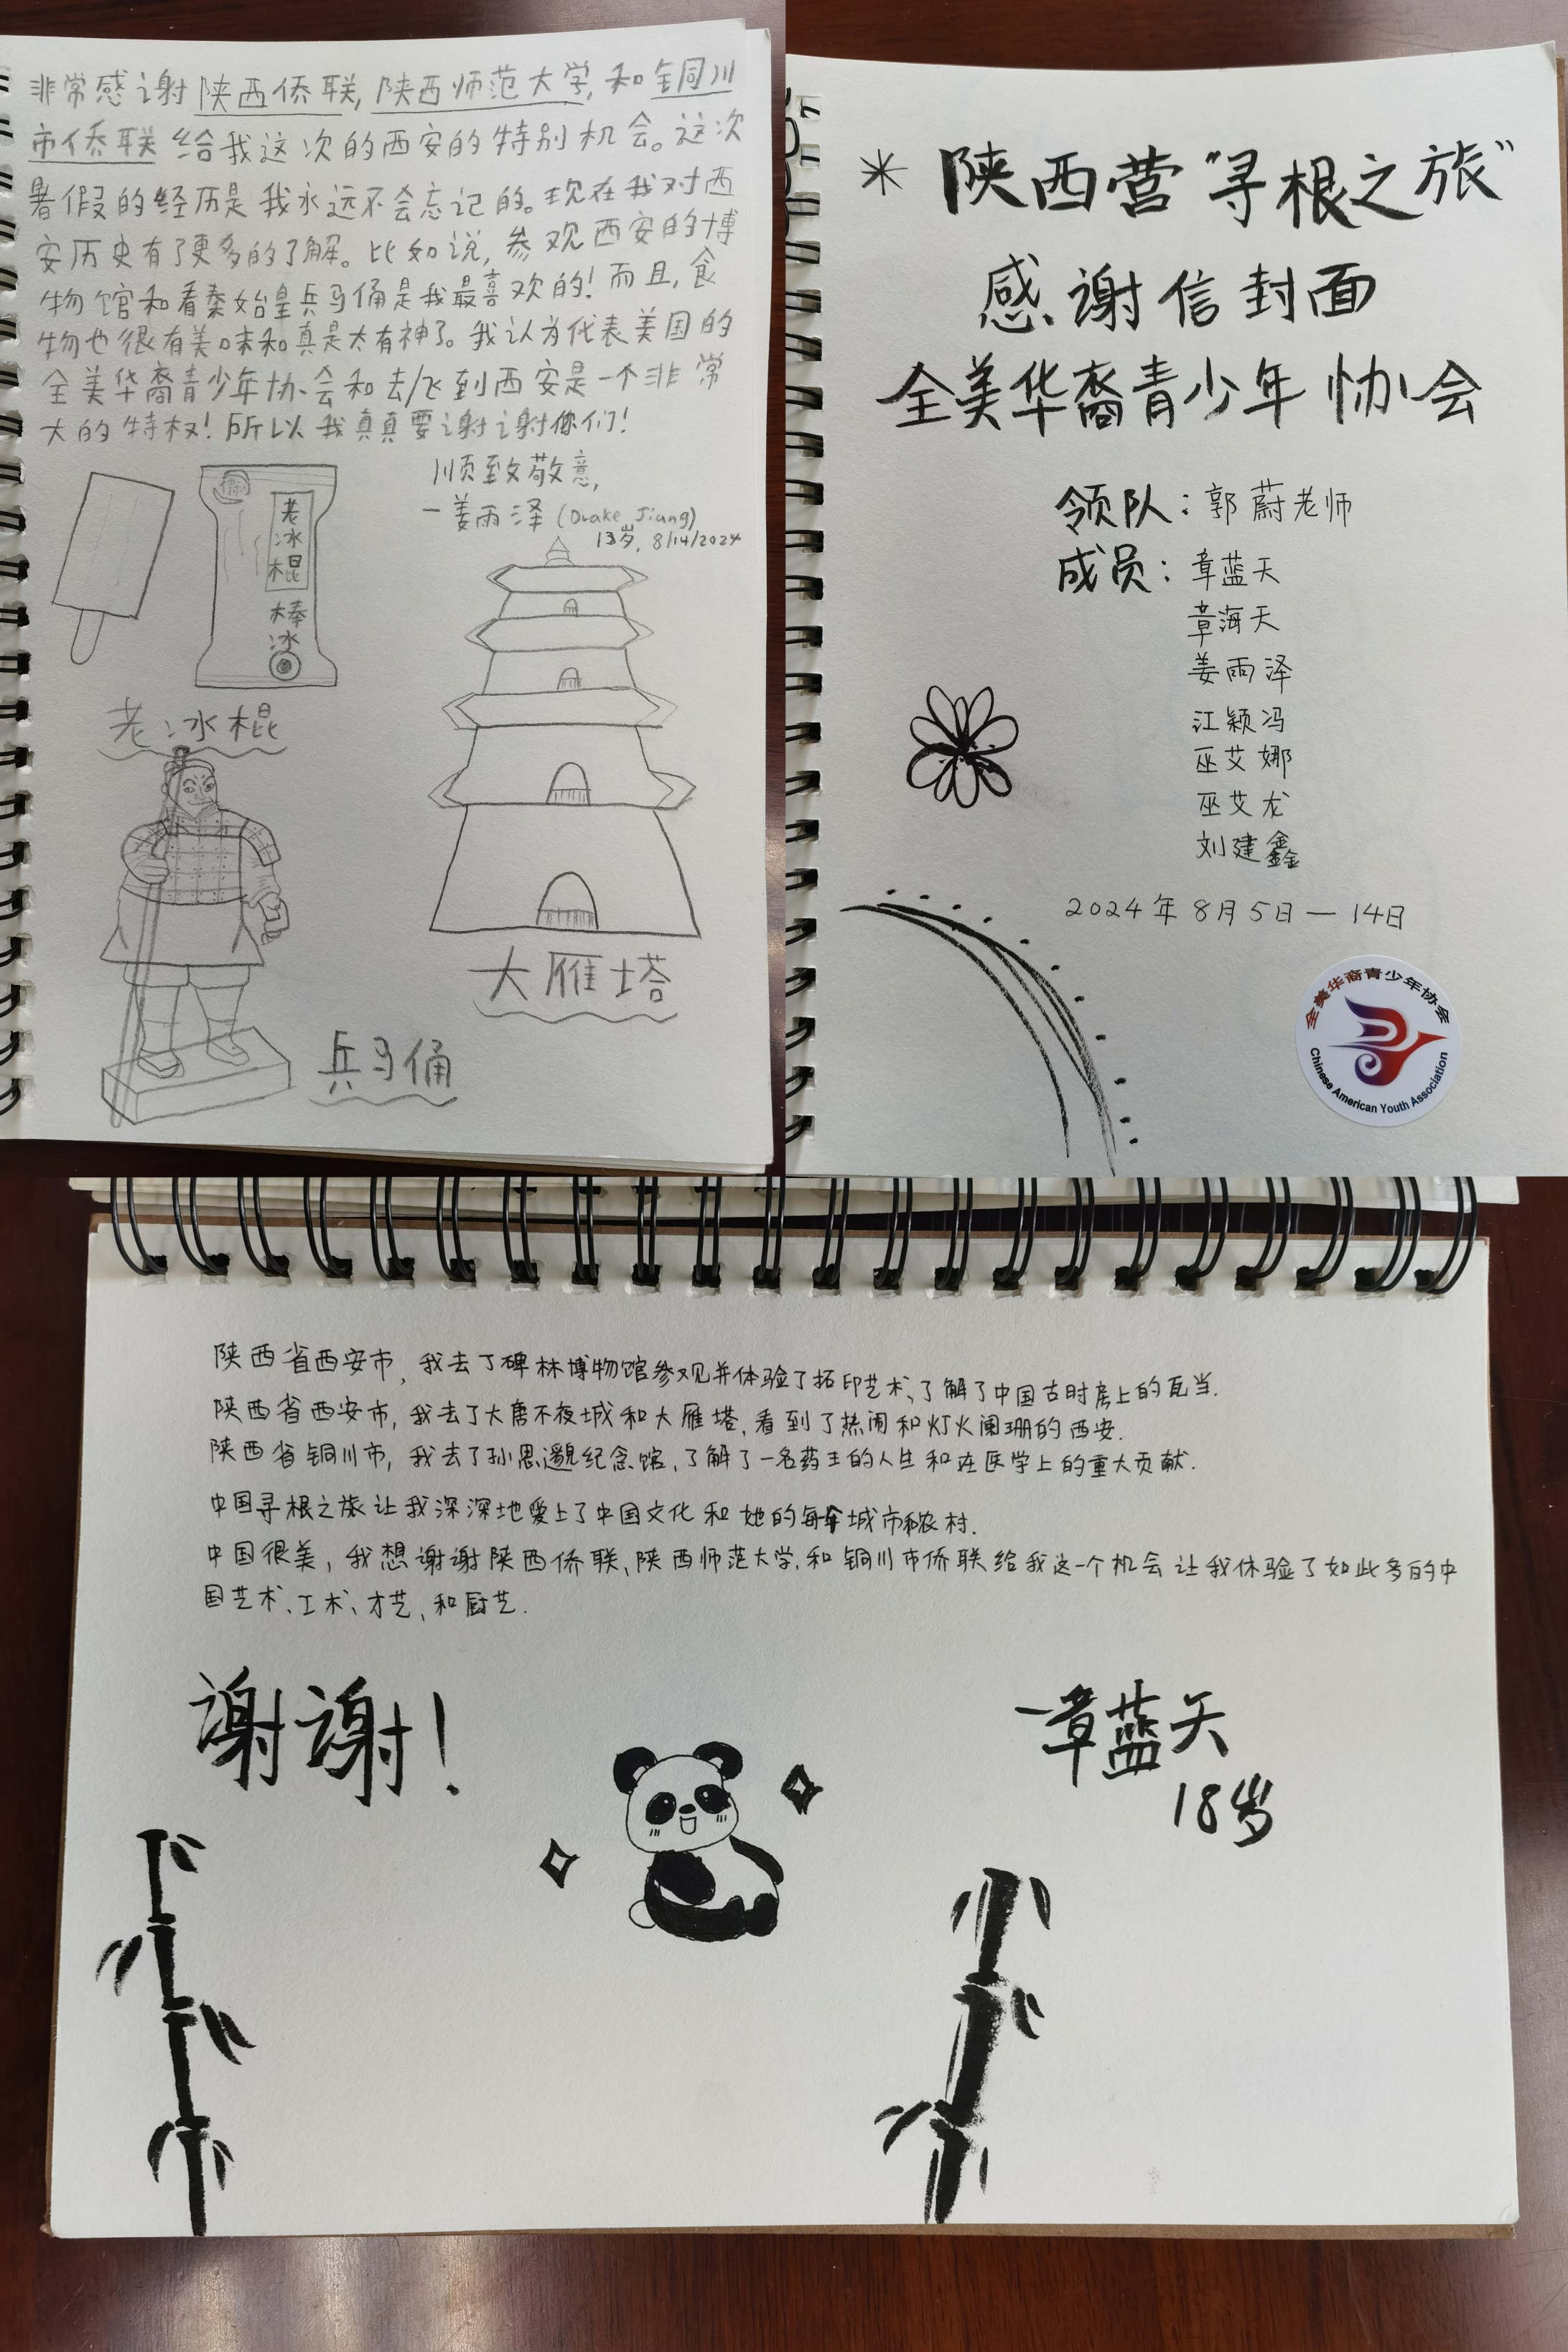 非常感谢陕西侨联,陕西师范大学,和铜川
市侨联给我这次的西安的特别机会。这次
暑假的经历是我永远不会忘记的。现在我对西
安历史有了更多的了解。比如说,参观西安的博
物馆和看秦始皇兵马俑是我最喜欢的!而且,食
物也很有美味和真是太有神了。我认为代表美国的
全美华裔青少年协会和去/飞到西安是一个非常
大的特权!所以我真真要谢谢你们!
顺致敬意,
一姜雨泽 (Drake Jiang)
13岁, 8/14/2024
老冰棍
棒冰
老冰棍
大雁塔
兵马俑
* 陕西营"寻根之旅"
感谢信封面
全美华裔青少年协会
领队:郭蔚老师
成员:章蓝天
章海天
姜雨泽
江颖冯
巫艾娜
巫艾龙
刘建鑫
2024年8月5日—14日
全美华裔青少年协会
Chinese American Youth Association
陕西省西安市,我去了碑林博物馆参观并体验了拓印艺术、了解了中国古时房上的瓦当.
陕西省西安市,我去了大唐不夜城和大雁塔,看到了热闹和灯火阑珊的西安.
陕西省铜川市,我去了孙思邈纪念馆,了解了一名药王的人生和在医学上的重大贡献.
中国寻根之旅让我深深地爱上了中国文化和她的每个城市和农村.
中国很美,我想谢谢陕西侨联,陕西师范大学,和铜川市侨联给我这一个机会让我体验了如此多的中
国艺术、工术、才艺、和厨艺.
谢谢!
一章蓝天
18岁